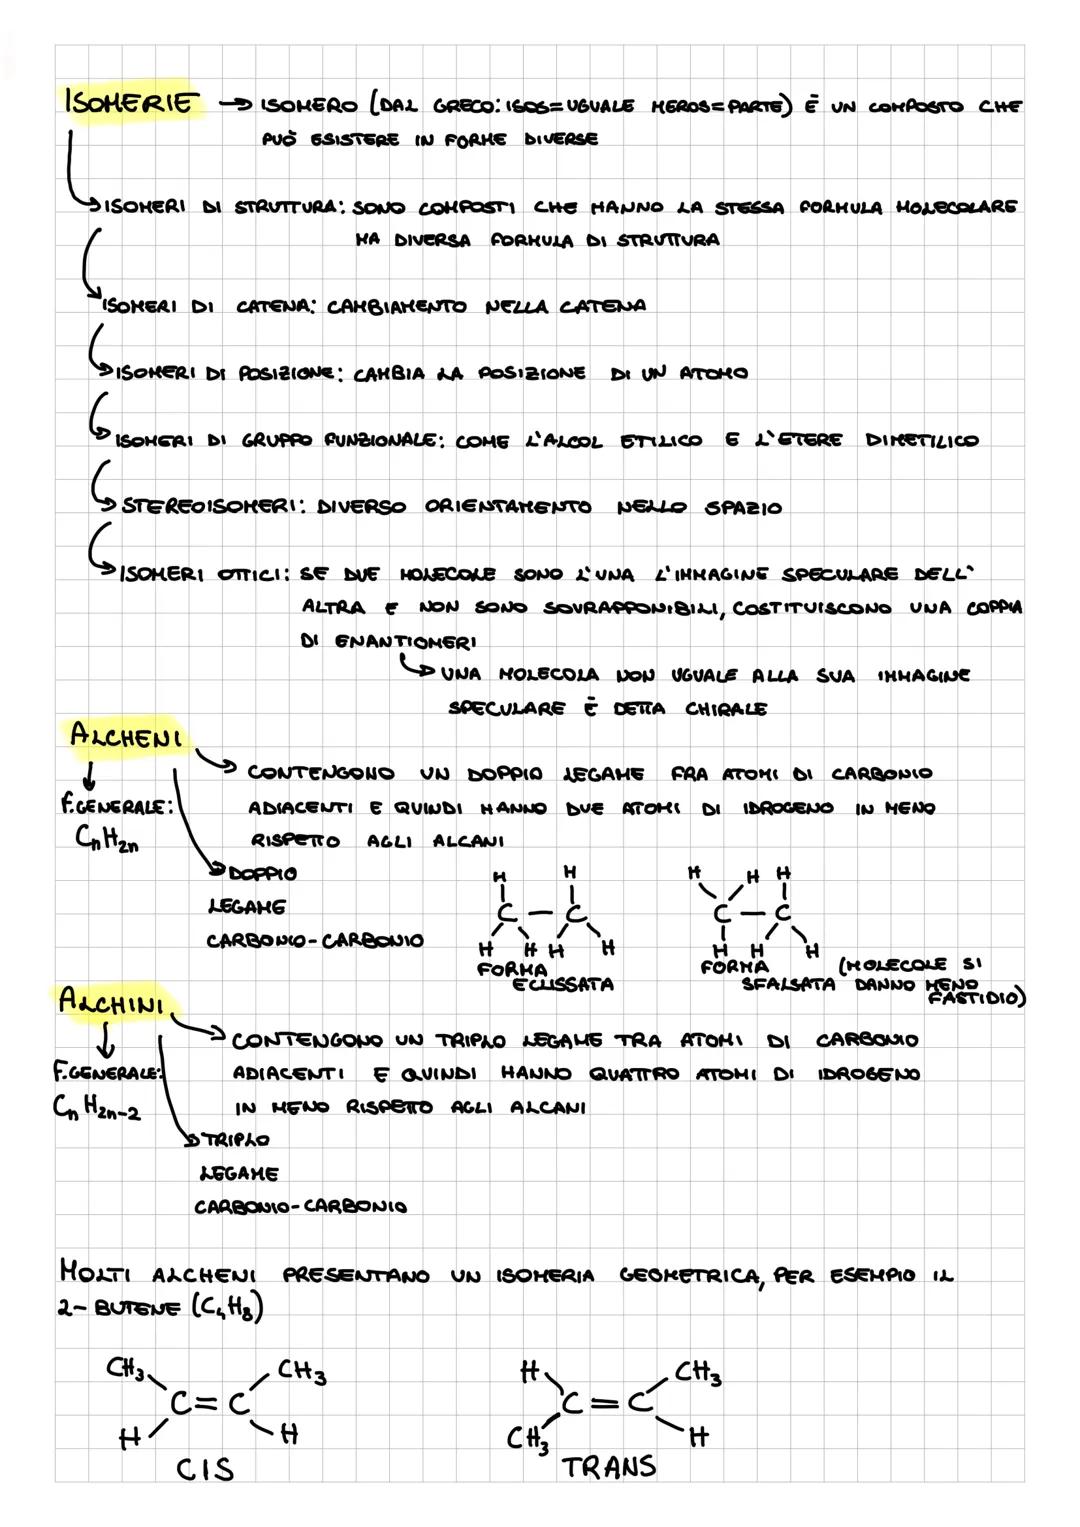 ISOMERIE → ISOMERO (DAL GRECO: ISOS=UGUALE MEROS=PARTE) È UN COMPOSTO CHE
PUÒ ESISTERE IN FORME DIVERSE
ISOMERI DI STRUTTURA: SONO COMPOSTI CHE HANNO LA STESSA FORMULA MOLECOLARE
MA DIVERSA FORMULA DI STRUTTURA
ISOMERI DI CATENA: CAMBIAMENTO NELLA CATENA
ISOMERI DI POSIZIONE: CAMBIA LA POSIZIONE DI UN ATOMO
ISOMERI DI GRUPPO FUNZIONALE: COME L'ALCOL ETILICO E L'ETERE DIMETILICO
STEREOISOMERI: DIVERSO ORIENTAMENTO NELLO SPAZIO
ISOMERI OTTICI: SE DUE MOLECOLE SONO L'UNA L'IMMAGINE SPECULARE DELL'
ALTRA E NON SONO SOVRAPPONIBILI, COSTITUISCONO UNA COPPIA
DI ENANTIOMERI
UNA MOLECOLA NON UGUALE ALLA SUA IMMAGINE
SPECULARE È DETTA CHIRALE
ALCHENI
CONTENGONO UN DOPPIO LEGAME FRA ATOMI DI CARBONIO
F.GENERALE: ADIACENTI E QUINDI HANNO DUE ATOMI DI IDROGENO IN MENO
CnH2n RISPETTO AGLI ALCANI
DOPPIO
LEGAME
CARBONIO-CARBONIO
H H H H H
C – C C – C
H H H H H H H
FORMA FORMA (MOLECOLE SI
ECLISSATA SFALSATA DANNO MENO
FASTIDIO)
ALCHINI
CONTENGONO UN TRIPLO LEGAME TRA ATOMI DI CARBONIO
F.GENERALE: ADIACENTI E QUINDI HANNO QUATTRO ATOMI DI IDROGENO
CnH2n-2 IN MENO RISPETTO AGLI ALCANI
TRIPLO
LEGAME
CARBONIO-CARBONIO
MOLTI ALCHENI PRESENTANO UN ISOMERIA GEOMETRICA, PER ESEMPIO IL
2-BUTENE (C4H8)
CH3 CH3 H CH3
C=C C=C
H H CH3 H
CIS TRANS